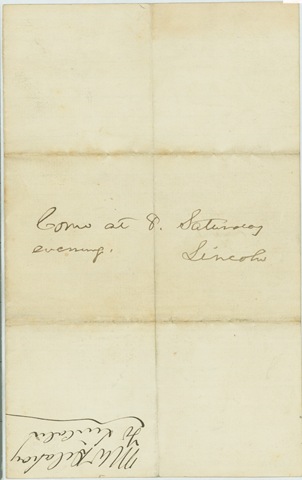 Come at 8. Saturday
evening. Lincoln
M W Delahay